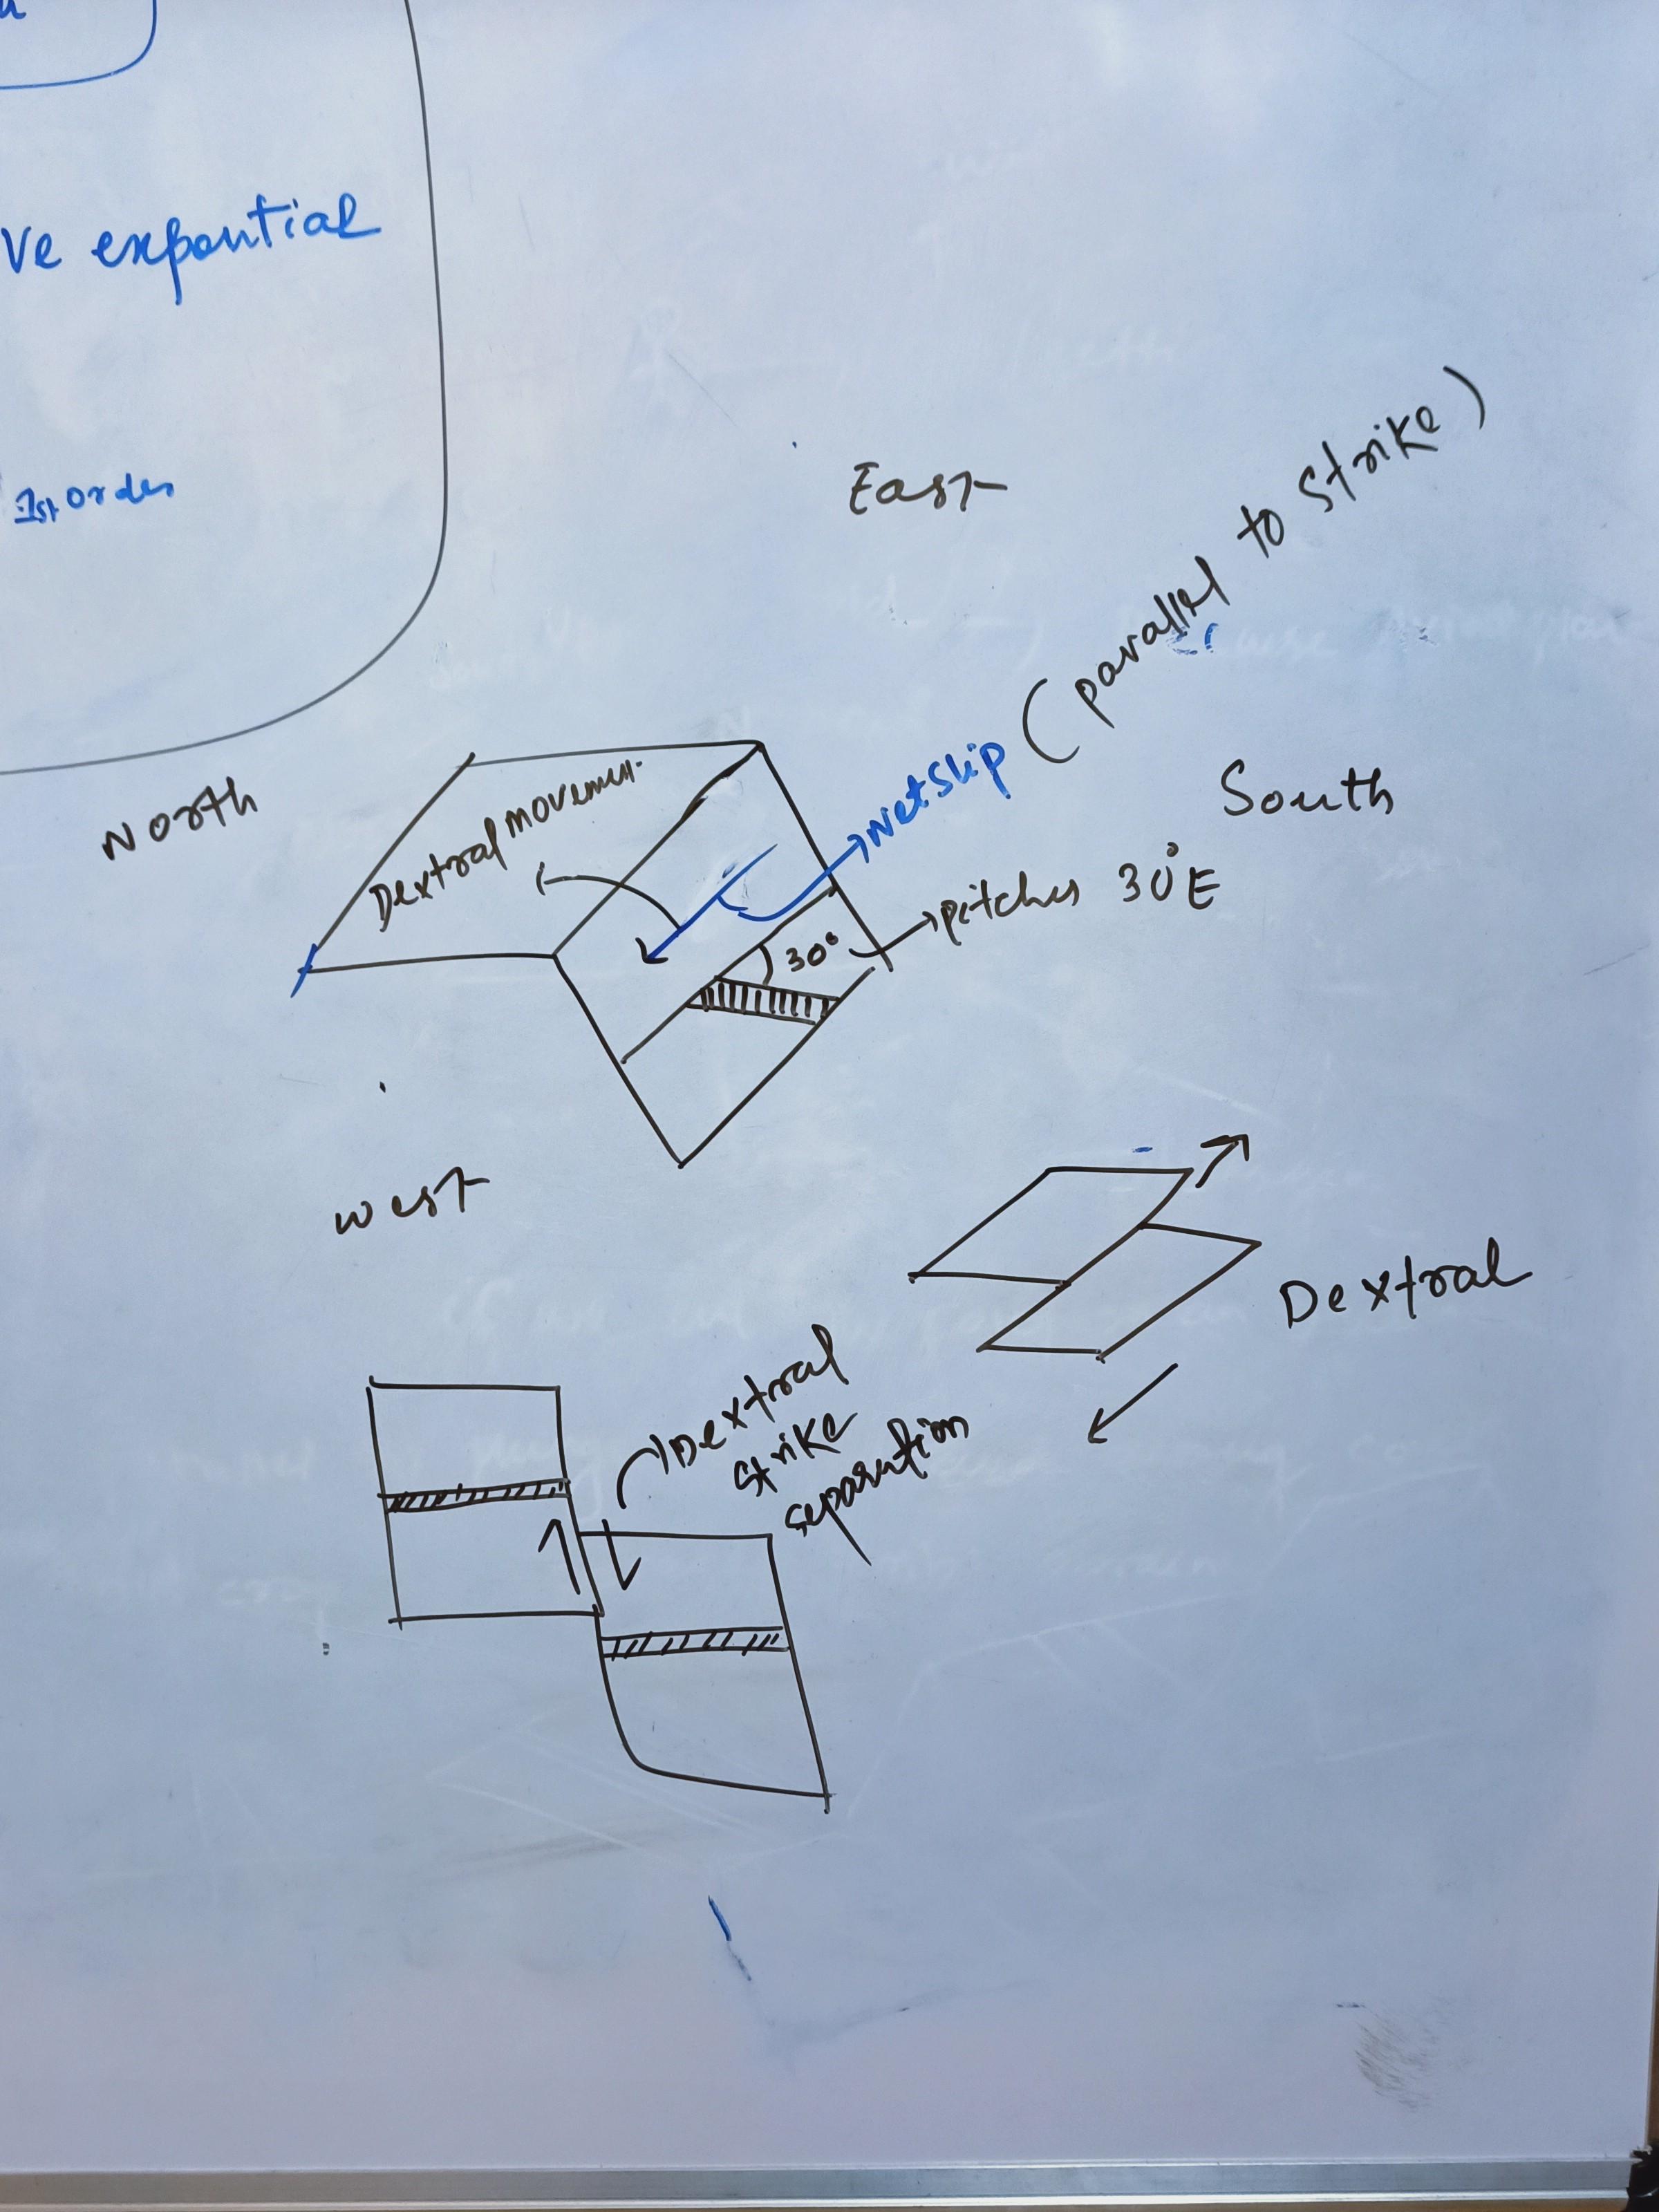 ve expontial
1st order
East
Netslip (parallel to strike)
North
Dextral movement
South
pitches 30°E
30°
West
Dextral
Dextral
strike
separation